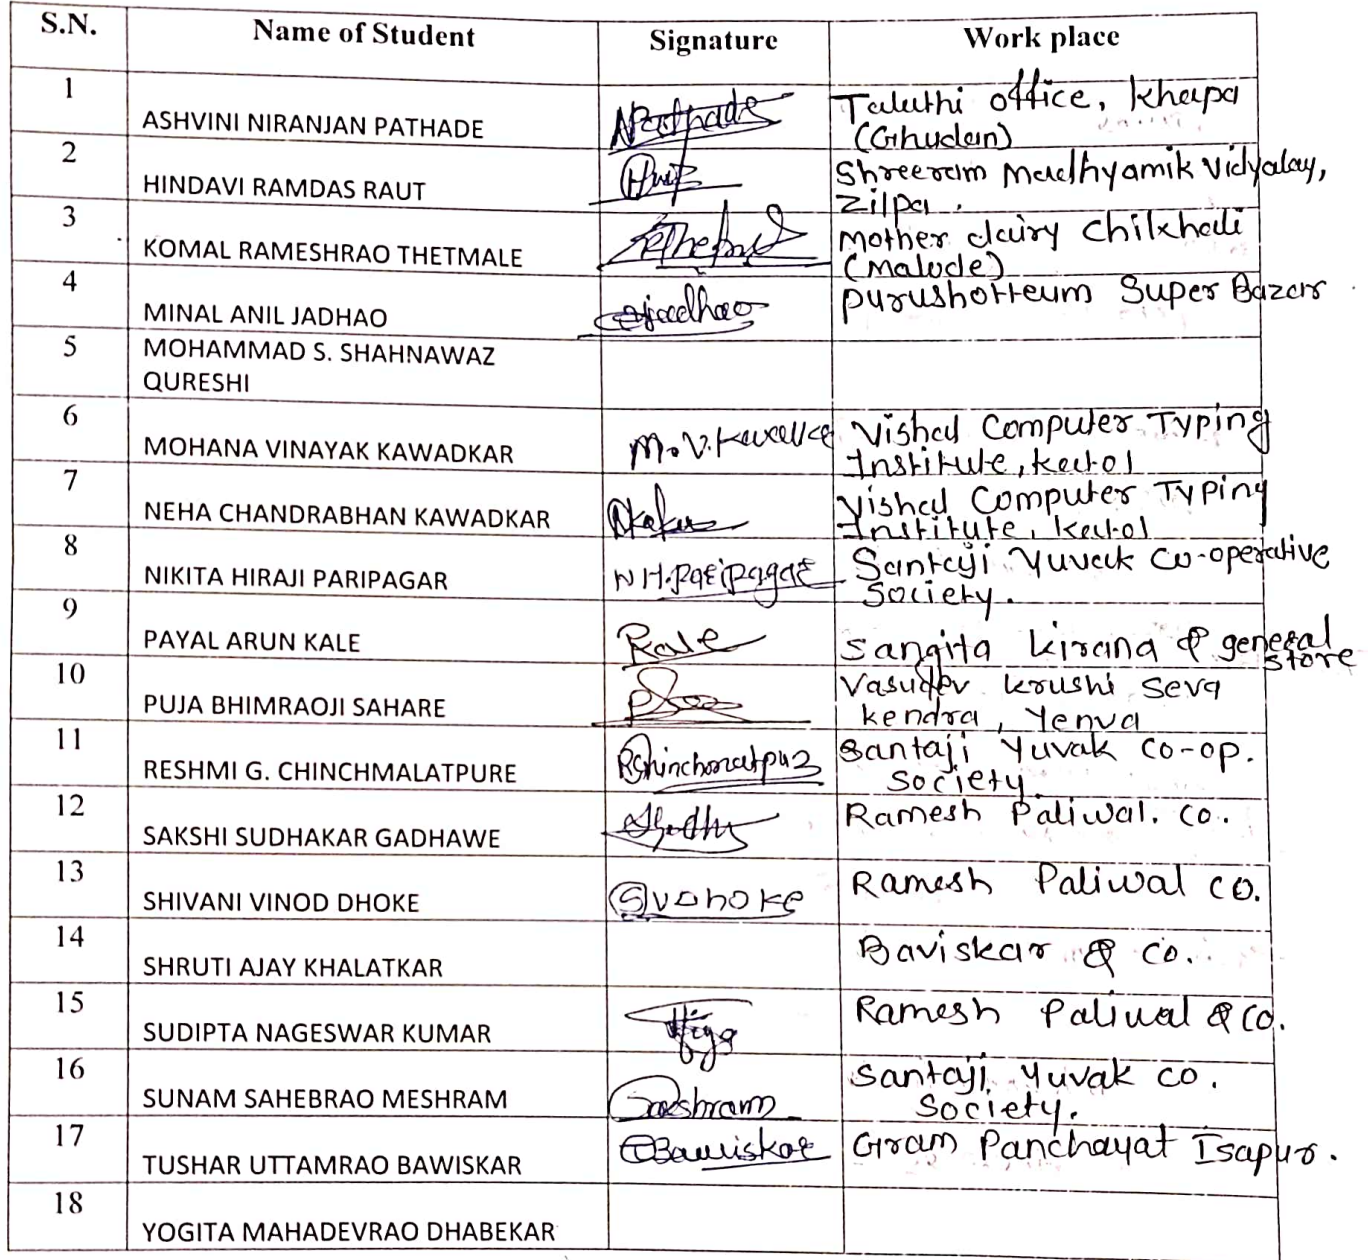 S.N. Name of Student Signature Work place
1 ASHVINI NIRANJAN PATHADE NPathade Talathi office, Khapa
(Ghudan)
2 HINDAVI RAMDAS RAUT Shreeram Madhyamik Vidyalay,
Zilpa.
3 KOMAL RAMESHRAO THETMALE Mother dairy Chikhali
(Malode)
4 MINAL ANIL JADHAO jaadhao Purushotteum Super Bazar
5 MOHAMMAD S. SHAHNAWAZ
QURESHI
6 MOHANA VINAYAK KAWADKAR M.V. Vishal Computer Typing
Institute, Katol
7 NEHA CHANDRABHAN KAWADKAR Vishal Computer Typing
Institute, Katol
8 NIKITA HIRAJI PARIPAGAR N H. Paripagar Santaji Yuvak Co-operative
Society.
9 PAYAL ARUN KALE Kale Sangita Kirana & general
store
10 PUJA BHIMRAOJI SAHARE Vasudev Krushi Seva
Kendra, Yenva
11 RESHMI G. CHINCHMALATPURE Santaji Yuvak Co-op.
Society.
12 SAKSHI SUDHAKAR GADHAWE Ramesh Paliwal. Co.
13 SHIVANI VINOD DHOKE SVDHOKE Ramesh Paliwal Co.
14 SHRUTI AJAY KHALATKAR Baviskar & Co.
15 SUDIPTA NAGESWAR KUMAR Ramesh Paliwal & Co.
16 SUNAM SAHEBRAO MESHRAM Santaji Yuvak Co.
Society.
17 TUSHAR UTTAMRAO BAWISKAR Bawiskar Gram Panchayat Isapur.
18 YOGITA MAHADEVRAO DHABEKAR